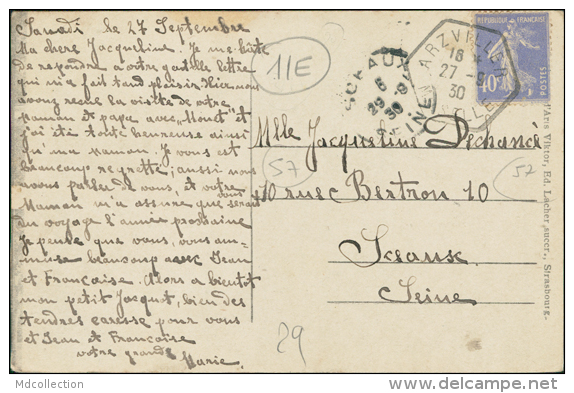 Samedi le 27 Septembre
Ma chere Jacqueline. Je me hâte
de repondre a votre gentille lettre
qui m'a fait tant plaisir Hier nous
avons recue la visite de votre
Maman et papa avec "Monet" et
j'ai été toute heureuse ainsi
qu'ma maman. Je vous est
beaucoup regretté; aussi nous
avons parlez de vous, et votre
Maman m'a assure que vous serais
du voyage l'année prochaine
Je pense que vous, vous am-
meuse beaucoup avec Jean
et Françoise. Alors a bientôt
mon petit Jacquot, bien des
tendres caresse pour vous
et Jean et Françoise
votre grande
Marie.
11E
SCEAUX
SEINE
ARZVILLER
18
27 -9
30
RÉPUBLIQUE FRANÇAISE
40
POSTES
Mlle Jacqueline Dechancé
57
57
10 rue Bertron 10
Sceaux
Seine
29
d'Art Viktor, Ed. Lacher succr., Strasbourg-
Mdcollection
delcampe.net